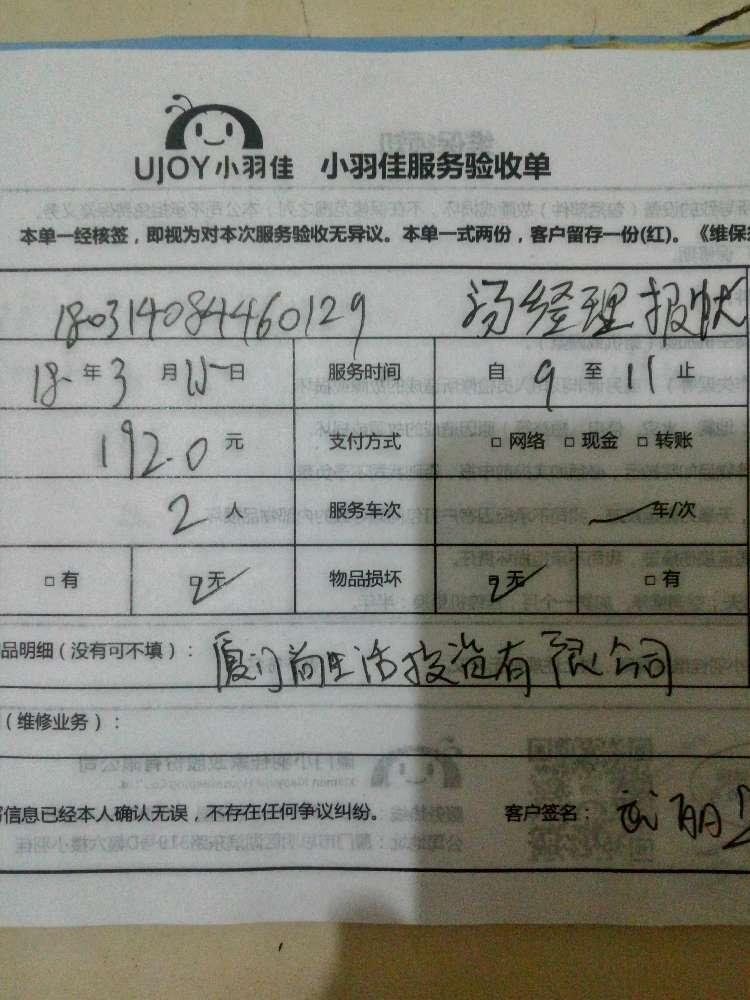 UJOY小羽佳 小羽佳服务验收单
本单一经核签，即视为对本次服务验收无异议。本单一式两份，客户留存一份(红)。《维保
180314084460129 汤经理报状
18 年 3 月 15 日 服务时间 自 9 至 11 止
192.0 元 支付方式 □ 网络 □ 现金 □ 转账
2 人 服务车次 车/次
□ 有 □ 无 物品损坏 □ 无 □ 有
品明细（没有可不填）： 厦门尚生活投资有限公司
（维修业务）：
信息已经本人确认无误，不存在任何争议纠纷。 客户签名： 武丽